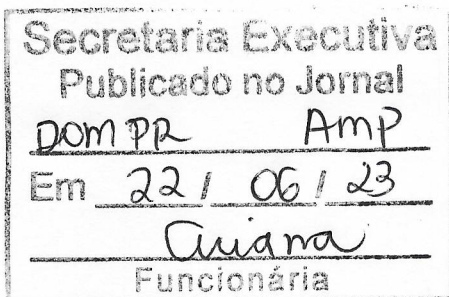 Secretaria Executiva
Publicado no Jornal
DOMPR AMP
Em 22 / 06 / 23
Funcionária